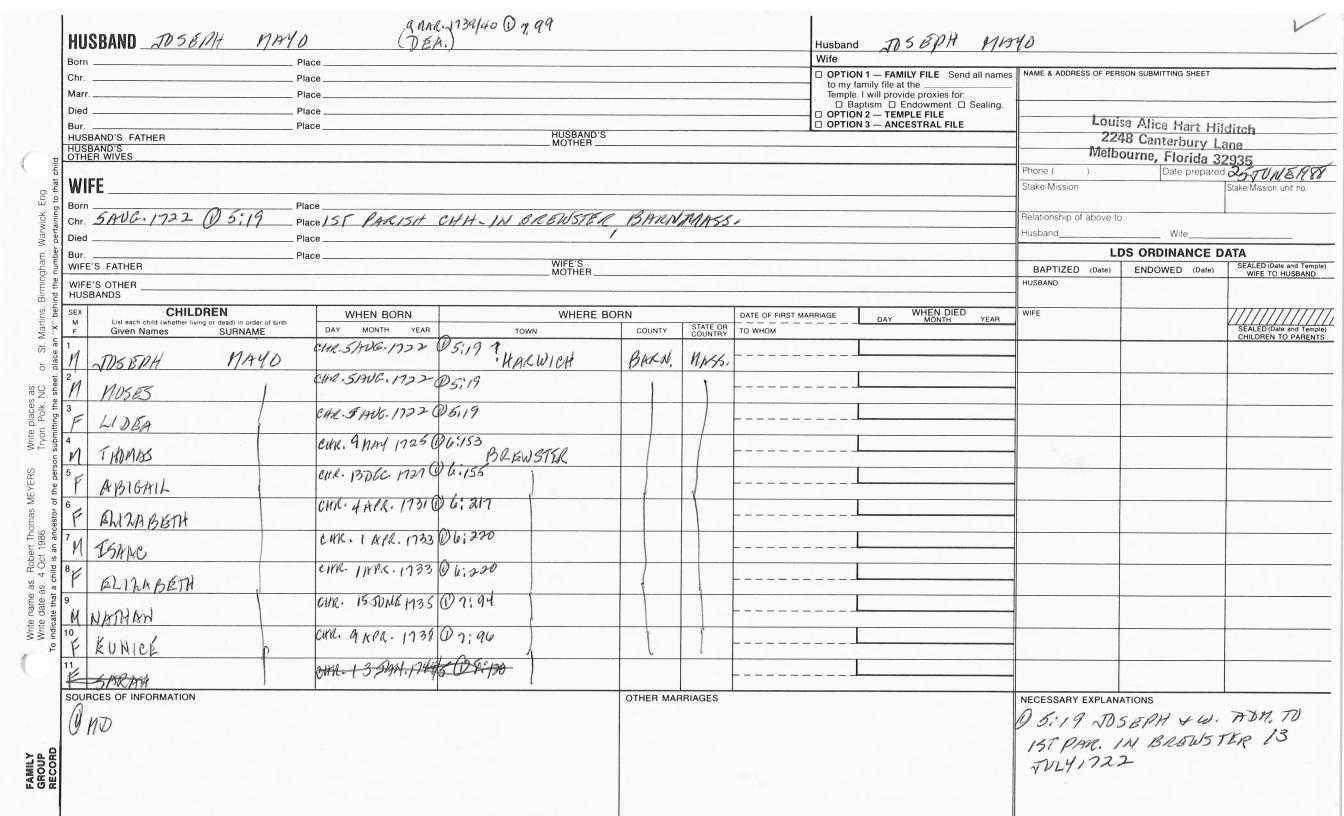 HUSBAND JOSEPH MAYO (DEA.) 9 MAR. 1739/40 ① 7,99
Born Place
Chr. Place
Marr. Place
Died Place
Bur. Place
HUSBAND'S FATHER HUSBAND'S MOTHER
HUSBAND'S OTHER WIVES
Husband JOSEPH MAYO
Wife
☐ OPTION 1 — FAMILY FILE Send all names
to my family file at the
Temple. I will provide proxies for:
☐ Baptism ☐ Endowment ☐ Sealing.
☐ OPTION 2 — TEMPLE FILE
☐ OPTION 3 — ANCESTRAL FILE
NAME & ADDRESS OF PERSON SUBMITTING SHEET
Louise Alice Hart Hilditch
2248 Canterbury Lane
Melbourne, Florida 32935
Phone ( ) Date prepared 25 JUNE 1988
Stake Mission Stake Mission unit no.
Relationship of above to
Husband Wife
WIFE
Born Place
Chr. 5 AUG. 1722 ① 5:19 Place 1ST PARISH CHH. IN BREWSTER, BARN. MASS.
Died Place
Bur. Place
WIFE'S FATHER WIFE'S MOTHER
WIFE'S OTHER HUSBANDS
LDS ORDINANCE DATA
BAPTIZED (Date) ENDOWED (Date) SEALED (Date and Temple) WIFE TO HUSBAND
HUSBAND
WIFE
SEALED (Date and Temple) CHILDREN TO PARENTS
SEX M F CHILDREN List each child (whether living or dead) in order of birth Given Names SURNAME WHEN BORN DAY MONTH YEAR WHERE BORN TOWN COUNTY STATE OR COUNTRY DATE OF FIRST MARRIAGE TO WHOM WHEN DIED DAY MONTH YEAR
1 M JOSEPH MAYO CHR. 5 AUG. 1722 ① 5:19 ? HARWICH BARN. MASS.
2 M MOSES CHR. 5 AUG. 1722 ① 5:19
3 F LIDEA CHR. 5 AUG. 1722 ① 5:19
4 M THOMAS CHR. 9 MAY 1725 ① 6:153 BREWSTER
5 F ABIGAIL CHR. 13 DEC. 1727 ① 6:155
6 F ELIZABETH CHR. 4 APR. 1731 ① 6:217
7 M ISAAC CHR. 1 APR. 1733 ① 6:220
8 F ELIZABETH CHR. 1 APR. 1733 ① 6:220
9 M NATHAN CHR. 15 JUNE 1735 ① 7:94
10 F EUNICE CHR. 9 APR. 1738 ① 7:96
11 F SARAH CHR. 13 JAN.
SOURCES OF INFORMATION
① MD
OTHER MARRIAGES
NECESSARY EXPLANATIONS
① 5:19 JOSEPH & W. ADM. TO
1ST PAR. IN BREWSTER 13
JULY, 1722
Write name as Robert Thomas MEYERS Write places as Tryon, Polk, NC or St. Martins, Birmingham, Warwick, Eng
Write date as 4 Oct 1986
To indicate that a child is an ancestor of the person submitting the sheet, place an "X" behind the number pertaining to that child.
FAMILY
GROUP
RECORD